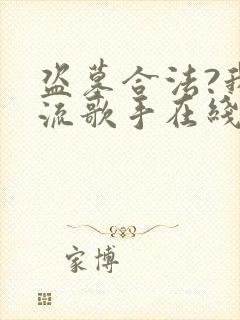 盗墓合法?我
流歌手在綫
家博